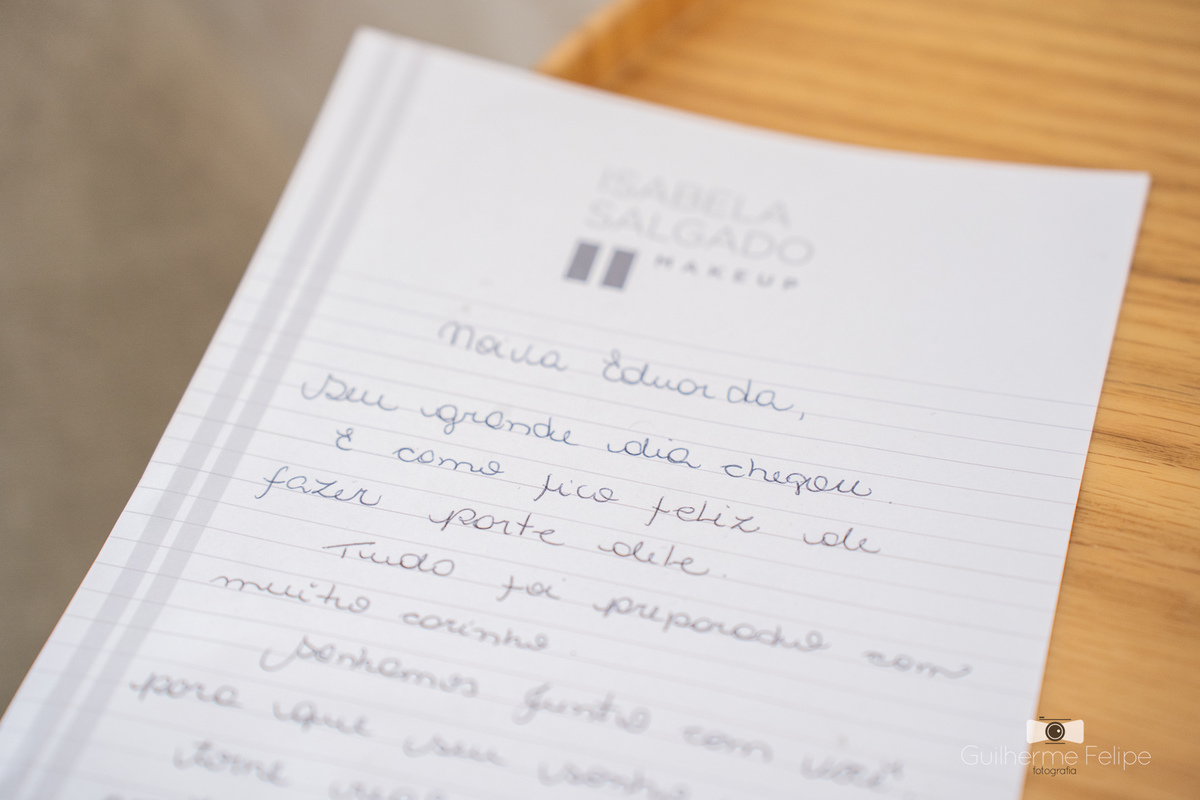 ISABELA
SALGADO
MAKEUP
Maria Eduarda,
Seu grande dia chegou.
E como fico feliz de
fazer parte dele.
Tudo foi preparado com
muito carinho.
Sonhamos junto com você
para que seu sonho
torne
Guilherme Felipe
fotografia